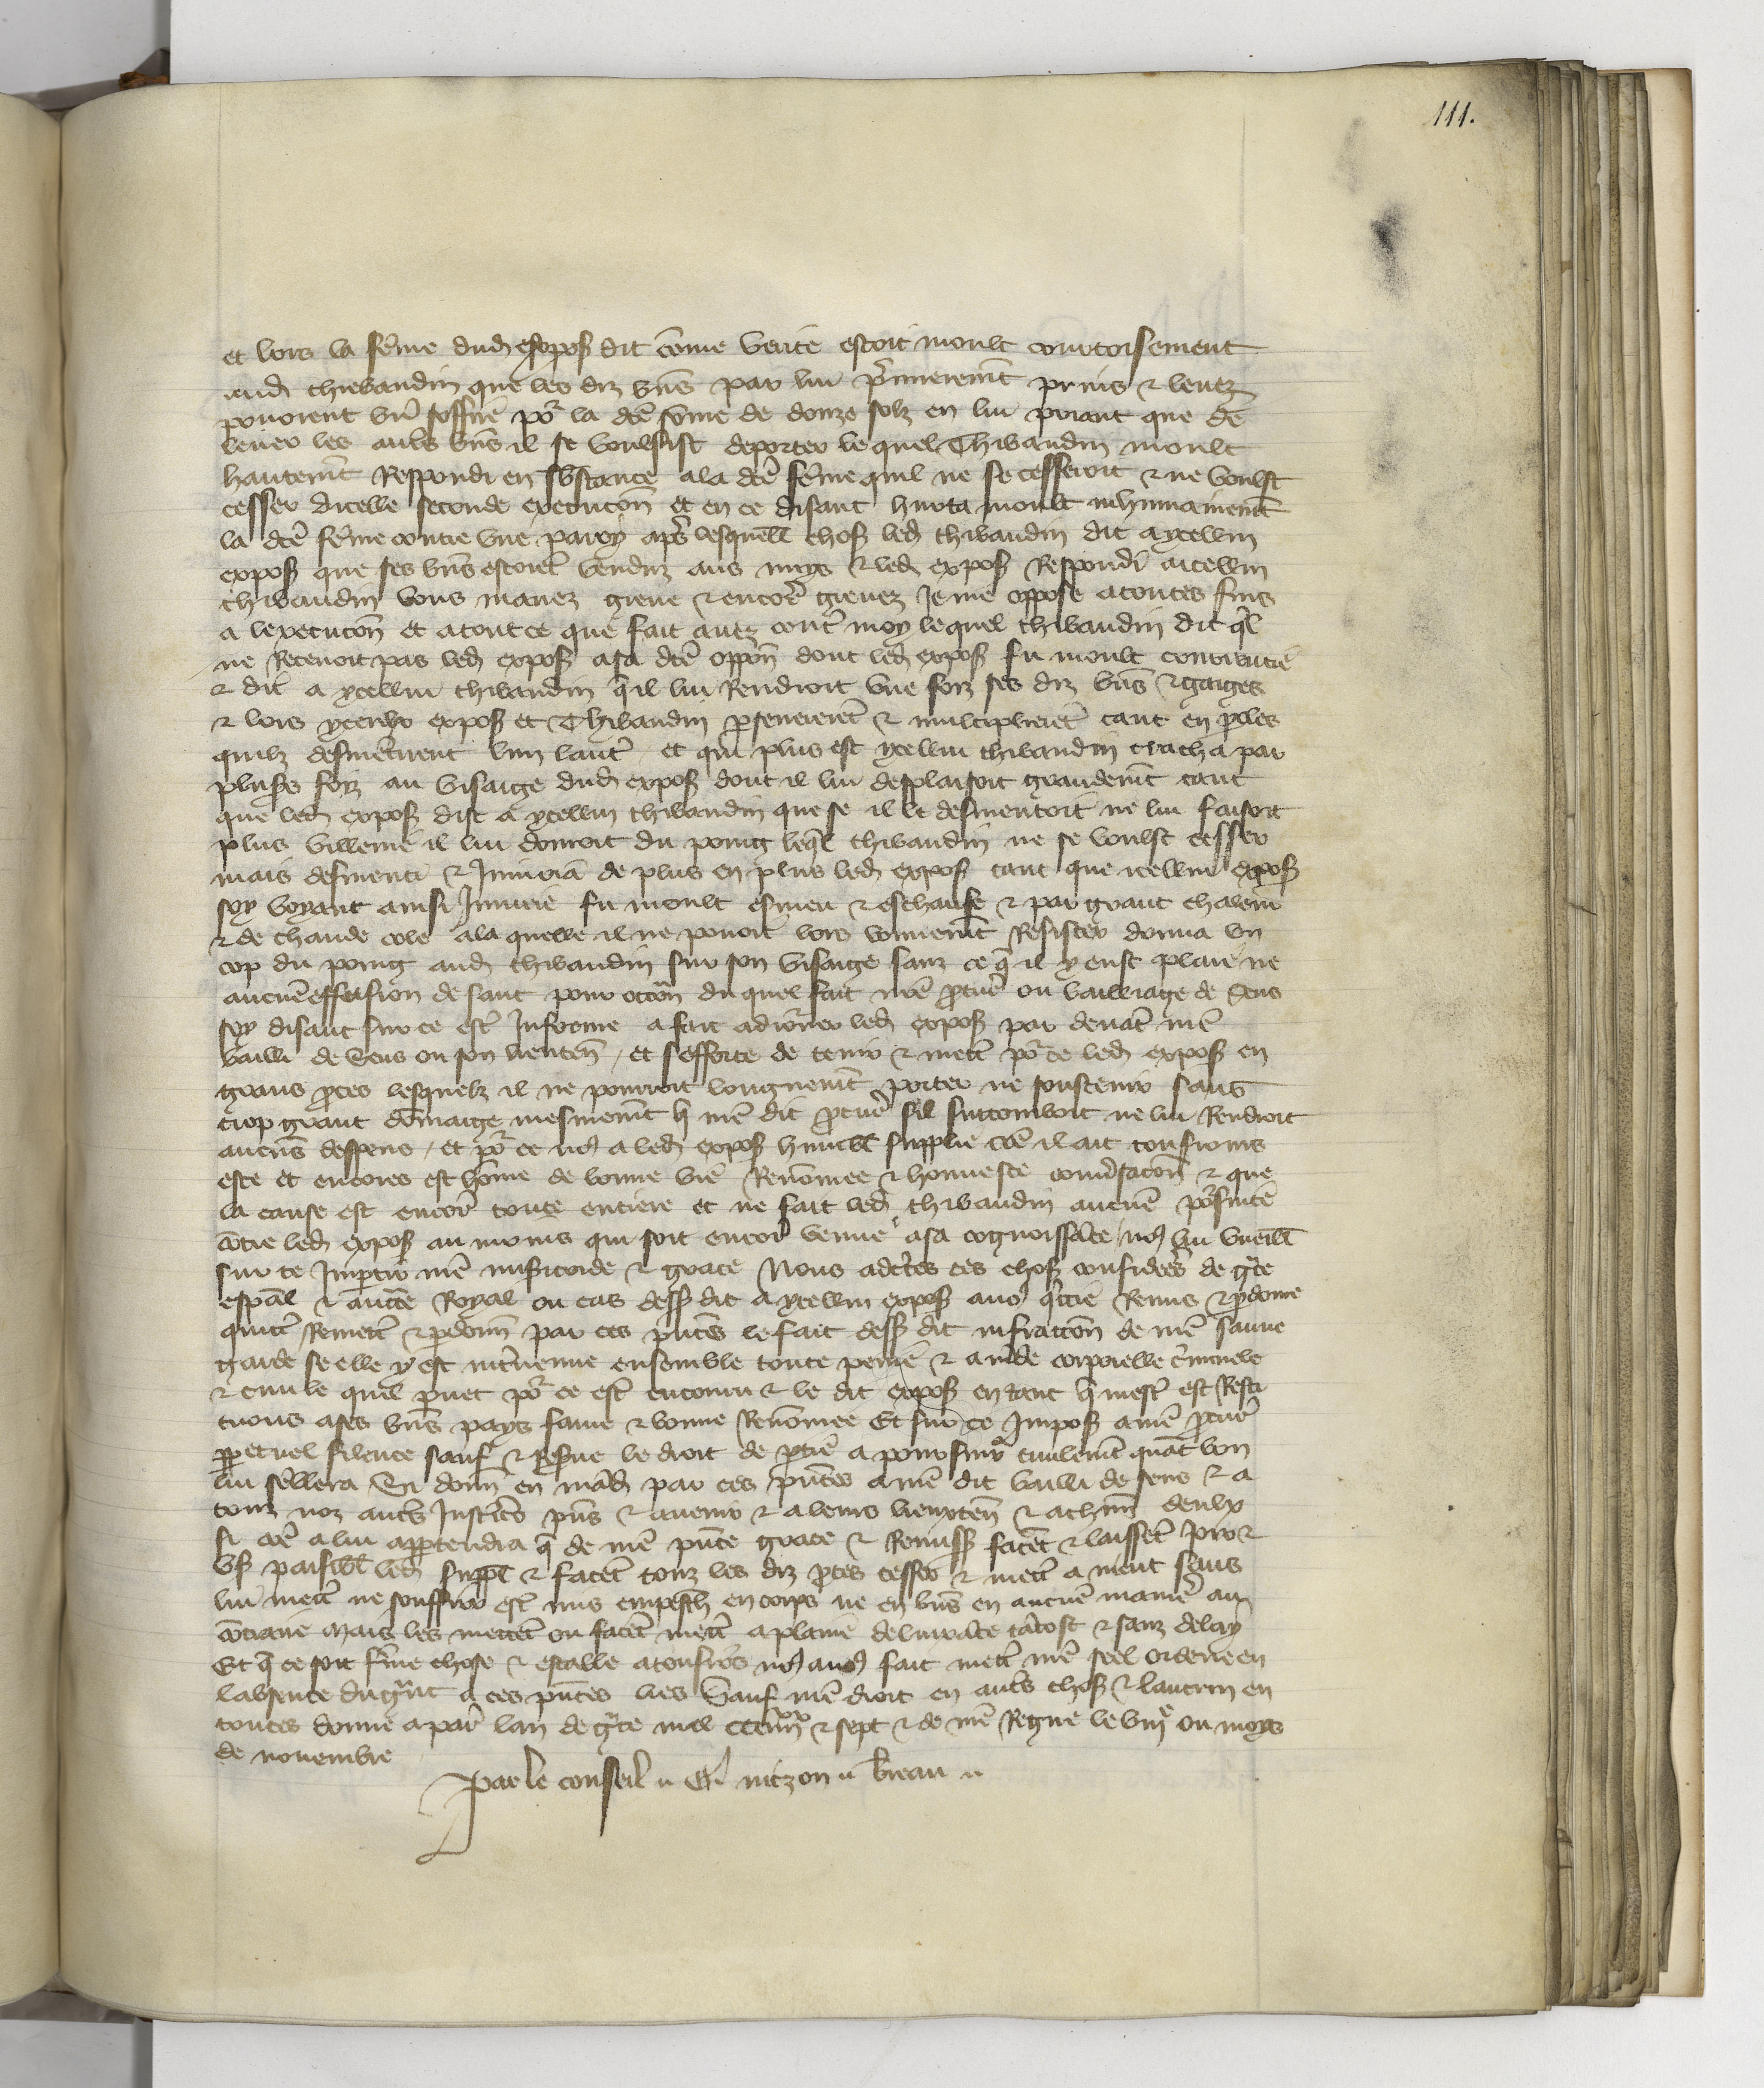 111.
et lors la fem̄e dud expos̄ dit cōme verite estoit moult courtoisement
aud thiebaudin que les diz bn̄s par lui p̄mieremēt prins & levez
povoient bn̄ soffire po² la dc̄e sōme de douze solz en lui priant que de
lever les aut̄s bn̄s il se voulsist deporter le quel Thibaudin moult
hautemēt Respondi en substance a la dc̄e fem̄e quil ne se cesseroit & ne voulst
cesser dicelle seconde execucōn et en ce disant hurta moult inhumainemēt
la dc̄e fem̄e contre une paroy ap̄s lesquell̄ chos̄ led thibaudin dit a ycellui
expos̄ que ses bn̄s estoiēt venduz aus nuys & led expos̄ Respondi aicellui
thibaudin vous mavez greve & encor̄ grevez Je me oppose a toutes fins
a lexecucōn et a tout ce que fait avez cont̄ moy lequel thibaudin dit q̄l
ne Recevoit pas led expos̄ a sa dc̄e oppōn dont led expos̄ fu moult
& dit a ycellui thibaudin q̄ il lui Rendroit une foiz ses diz bn̄s & gaiges
& lors yceulx expos̄ et Thibaudin p̄severerēt & multiplierēt tant en p̄oles
quilz desmētirent lun laut̄ et qui plus est ycellui thibaudin cracha par
plus̄s foiz au visaige dud expos̄ dont il lui desplaisoit grandemēt tant
que led expos̄ dist a ycellui thibaudin que se il le desmentoit ne lui faisoit
plus villenie il lui donroit du poing leq̄l thibaudin ne se voulst cesser
mais desmenti & Injuria de plus en plus led expos̄ tant que icellui expos̄
soy voyant ainsi Injurie fu moult esmeu & eschaufe & par grant chaleur
& de chaude cole a la quelle il ne povoit lors bonnemēt Resister donna un
cop du poing aud thibaudin sur son visaige sanz ce q̄ il y eust plaie ne
aucunē effusion de sanc pour occōn du quel fait nr̄e p̄cur̄ ou bailliage de Sens
soy disant sur ce est̄ Informe a fait adiōrner led expos̄ par devāt nr̄e
bailli de Sens ou son lieuten̄ / et sefforce de tenir & mett̄ po² ce led expos̄ en
grans p̄ces lesquelz il ne pourroit longuemēt porter ne soustenir sans
trop grant dōmaige mesmemēt q̄ nr̄e dit p̄cur̄ sil succomboit ne lui Rendroit
aucūs despens / et po² ce no⁹ a led expos̄ humbl̄ supplie cōe il ait tousiours
este et encores est hōme de bonne vie Renōmee & honneste conv̄sacōn & que
la cause est encor̄ toute entiere et ne fait led thibaudin aucunē po²suite
cōtre led expos̄ au moins qui soit encor̄ venue a sa cognoissāce / no⁹ lui vueill̄
sur ce Imp̄tir nr̄e mis̄icorde & grace Nous adc̄tes ces chos̄ considerēs de gr̄ce
esp̄al & auct̄e Royal ou cas dess̄ dit a ycellui expos̄ avo⁹ q̄ttie Remis & p̄donne
quitt̄ Remett̄ & p̄donn̄ par ces p̄ntes le fait dess̄ dit infraccōn de nr̄e sauve
garde se elle y est int̄venue ensemble toute peine & amēde corporelle c̄iminele
& civile quil p̄uet po² ce est̄ encouru & le dit expos̄ en tant q̄ mest̄ est Resti
tuons a ses bn̄s pays fame & bonne Renōmee Et sur ce Impos̄ a nr̄e p̄cur̄
p̄petuel silence sauf & Res̄ve le droit de p̄tie a poursuir̄ civilemēt quāt bon
lui sēblera Si donn̄ en mād par ces p̄ntes a nr̄e dit bailli de sens & a
touz noz aut̄s Justic̄s p̄ns & avenir & a leurs lieuxten̄ & a chūn deulx
si cōe a lui app̄tendra q̄ de nr̄e p̄nte grace & Remiss̄ facēt & laissēt Joir &
us̄ paisibl̄ led suppl̄ & facēt touz les diz p̄ces cesser & mett̄ a nient sans
lui mett̄ ne souffrir est̄ mis empesch en corps ne en bn̄s en aucunē manier̄ au
cōtraire Mais les mettēt ou facēt mett̄ a plaine delivrāce tātost & sanz delay
Et q̄ ce soit ferme chose & estable a tousio²s no⁹ avo⁹ fait mett̄ nr̄e seel ordene en
labsence du gr̄nt a ces p̄ntes l̄res Sauf nr̄e droit en aut̄s chos̄ & lautrui en
toutes donne a par̄ lan de gr̄ce mil CCC iiii xx & sept & de nr̄e Regne le viiiᵉ ou moys
de novembre
Par le conseil